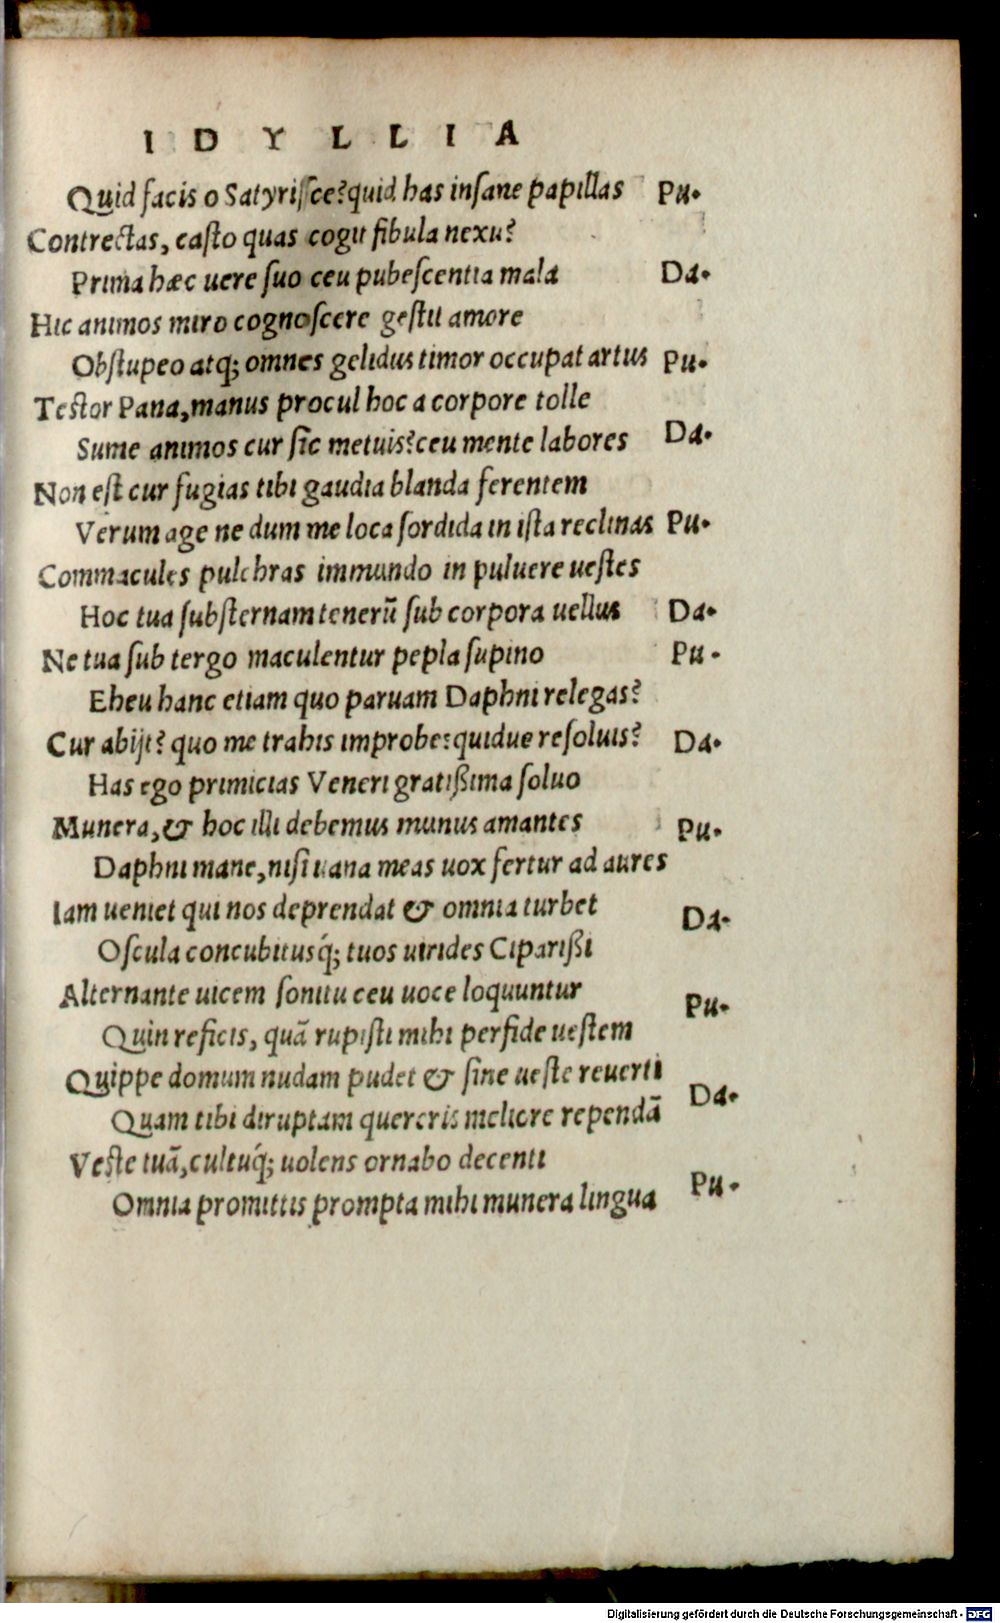 IDYLLIA
Quid facis o Satyrisce? quid has insane papillas Pu.
Contrectas, casto quas cogit fibula nexu?
Prima hæc uere suo ceu pubescentia mala Da.
Hic animos miro cognoscere gestit amore
Obstupeo atq; omnes gelidus timor occupat artus Pu.
Testor Pana, manus procul hoc a corpore tolle
Sume animos cur sic metuis? ceu mente labores Da.
Non est cur fugias tibi gaudia blanda ferentem
Verum age ne dum me loca sordida in ista reclinas Pu.
Commacules pulchras immundo in puluere uestes
Hoc tua substernam tenerũ sub corpora uellus Da.
Ne tua sub tergo maculentur pepla supino Pu.
Eheu hanc etiam quo paruam Daphni relegas?
Cur abijt? quo me trahis improbe? quidue resoluis? Da.
Has ego primicias Veneri gratißima soluo
Munera, & hoc illi debemus munus amantes Pu.
Daphni mane, nisi uana meas uox fertur ad aures
Iam ueniet qui nos deprendat & omnia turbet Da.
Oscula concubitusq́; tuos uirides Ciparißi
Alternante uicem sonitu ceu uoce loquuntur Pu.
Quin reficis, quã rupisti mihi perfide uestem
Quippe domum nudam pudet & sine ueste reuerti
Quam tibi diruptam quereris meliore rependã Da.
Veste tuã, cultuq́; uolens ornabo decenti
Omnia promittis prompta mihi munera lingua Pu.
Digitalisierung gefördert durch die Deutsche Forschungsgemeinschaft - DFG